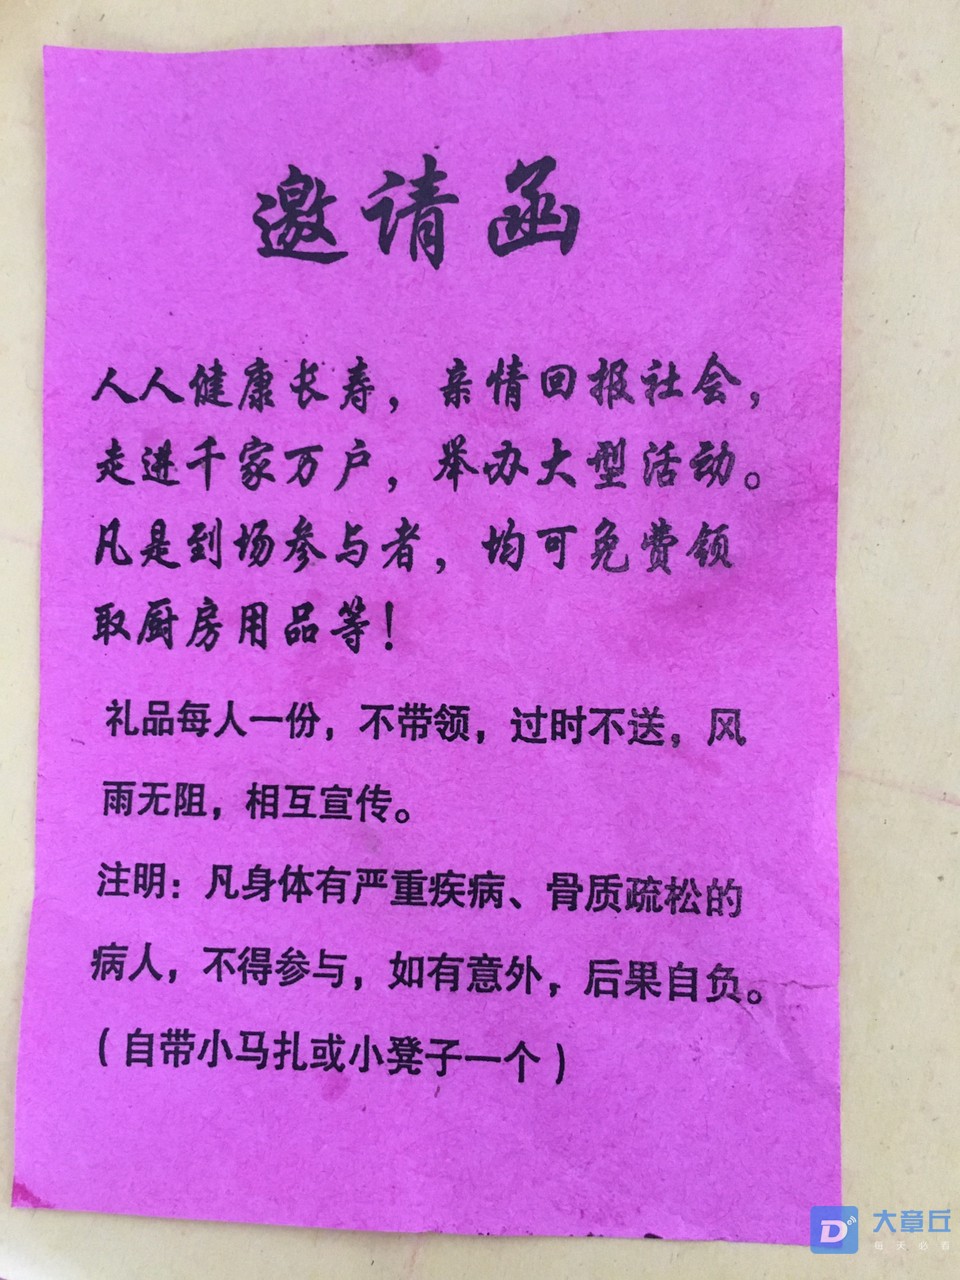 邀请函
人人健康长寿，亲情回报社会，
走进千家万户，举办大型活动。
凡是到场参与者，均可免费领
取厨房用品等！
礼品每人一份，不带领，过时不送，风
雨无阻，相互宣传。
注明：凡身体有严重疾病、骨质疏松的
病人，不得参与，如有意外，后果自负。
（自带小马扎或小凳子一个）
D 大章丘
每天必看